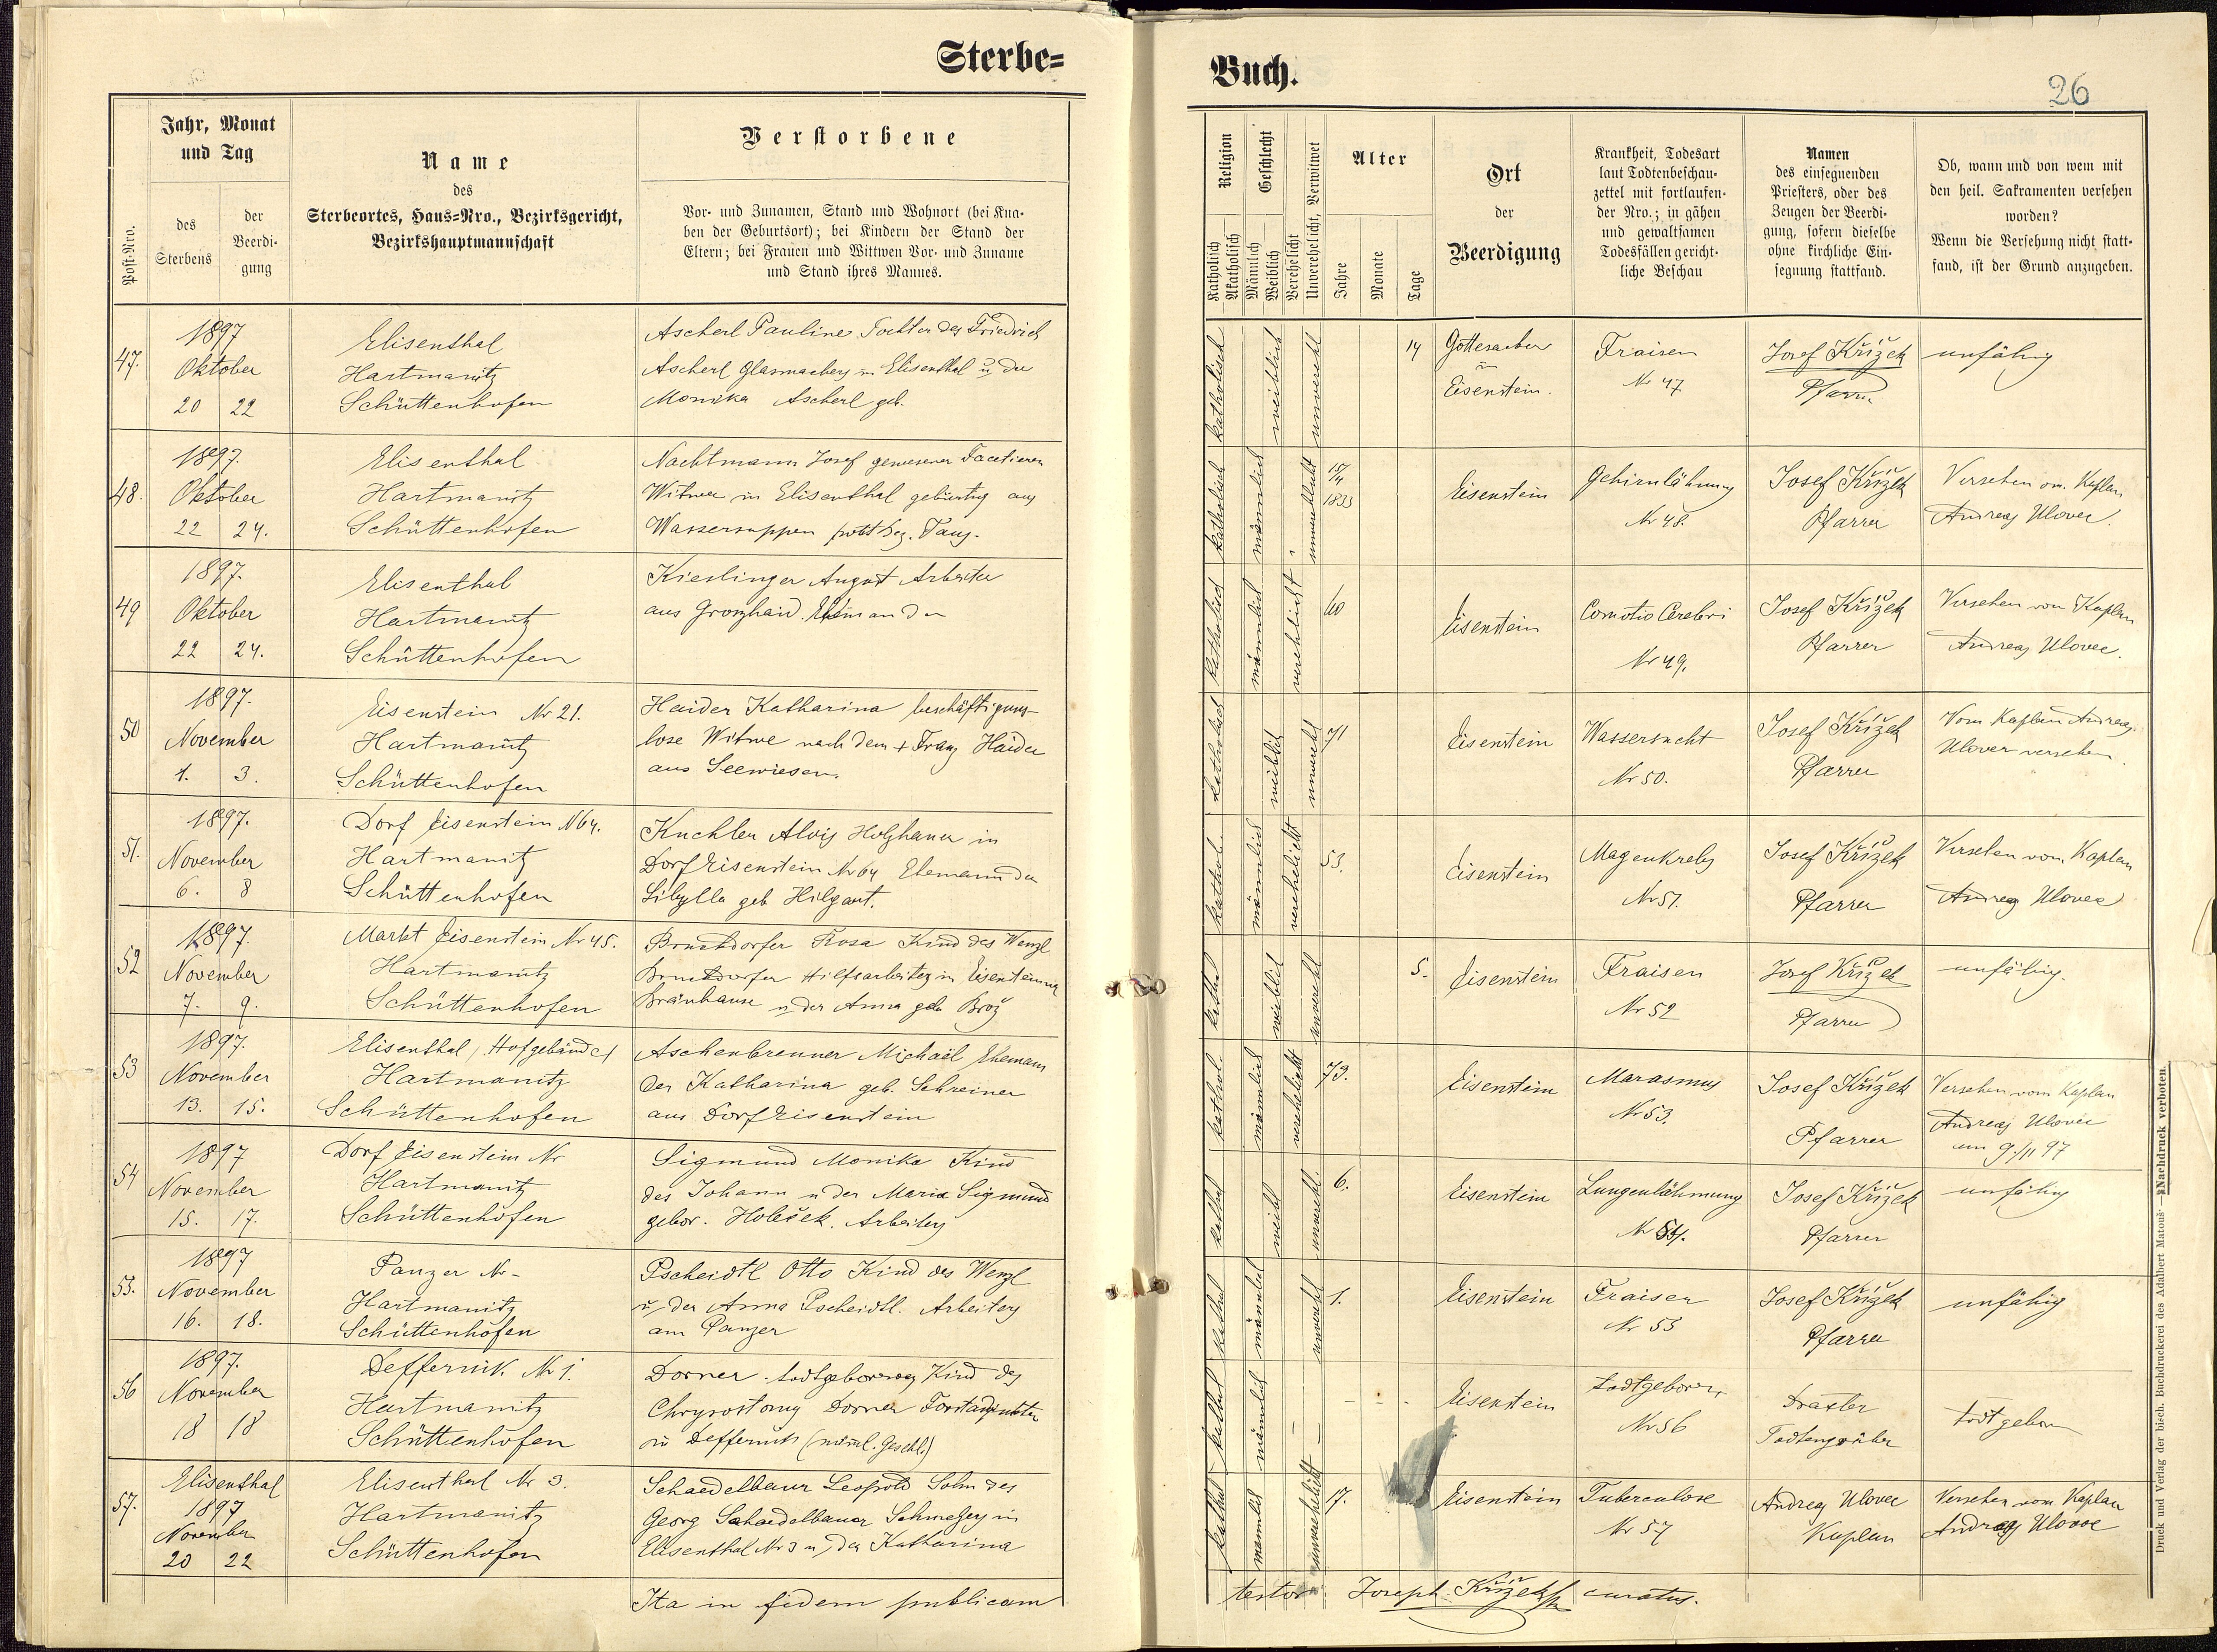 Sterbe=
Buch.
26
Post-Nro.
Jahr, Monat
und Tag
des
Sterbens
der
Beerdi-
gung
Name
des
Sterbeortes, Haus=Nro., Bezirksgericht,
Bezirkshauptmannschaft
Verstorbene
Vor- und Zunamen, Stand und Wohnort (bei Kna-
ben der Geburtsort); bei Kindern der Stand der
Eltern; bei Frauen und Wittwen Vor- und Zuname
und Stand ihres Mannes.
Religion
Katholisch
Akatholisch
Geschlecht
Männlich
Weiblich
Verehelicht
Unverehelicht, Verwitwet
Alter
Jahre
Monate
Tage
Ort
der
Beerdigung
Krankheit, Todesart
laut Todtenbeschau-
zettel mit fortlaufen-
der Nro.; in gähen
und gewaltsamen
Todesfällen gericht-
liche Beschau
Namen
des einsegnenden
Priesters, oder des
Zeugen der Beerdi-
gung, sofern dieselbe
ohne kirchliche Ein-
segnung stattfand.
Ob, wann und von wem mit
den heil. Sakramenten versehen
worden?
Wenn die Versehung nicht statt-
fand, ist der Grund anzugeben.
47.
1897
Oktober
20 22
Elisenthal
Hartmanitz
Schüttenhofen
Ascherl Pauline Tochter des Friedrich
Ascherl Glasmachers in Elisenthal u. der
Monika Ascherl geb.
katholisch
weiblich
unverehl
14
Gottesacker
in
Eisenstein.
Fraisen
Nr 47
Josef Křížek
Pfarrer
unfähig
48.
1897.
Oktober
22 24.
Elisenthal
Hartmanitz
Schüttenhofen
Nachtmann Josef gewesener Facetierer
Witwer in Elisenthal gebürtig aus
Wassersuppen Bez. Taus.
katholisch
männlich
unverehelicht
15/4
1833
Eisenstein
Gehirnlähmung
Nr 48.
Josef Křížek
Pfarrer
Versehen v. Kaplan
Andreas Ulovec.
49
1897.
Oktober
22 24.
Elisenthal
Hartmanitz
Schüttenhofen
Kieslinger August Arbeiter
aus Grosshaid. Ehemann der
katholisch
männlich
verehlicht
60
Eisenstein
Comotio Cerebri
Nr 49.
Josef Křížek
Pfarrer
Versehen vom Kaplan
Andreas Ulovec.
50
1897.
November
1. 3.
Eisenstein Nr 21.
Hartmanitz
Schüttenhofen
Haider Katharina beschäftigungs-
lose Witwe nach dem + Franz Haider
aus Seewiesen.
katholisch
weiblich
unverehl
71
Eisenstein
Wassersucht
Nr 50.
Josef Křížek
Pfarrer
Vom Kaplan Andreas
Ulovec versehen.
51.
1897.
November
6. 8
Dorf Eisenstein N 64.
Hartmanitz
Schüttenhofen
Kuchler Alois Holzhauer in
Dorf Eisenstein Nr 64 Ehemann der
Sibylla geb Hilgart.
kathol.
männlich
verehelicht
53.
Eisenstein
Magenkrebs
Nr 51.
Josef Křížek
Pfarrer
Versehen vom Kaplan
Andreas Ulovec
52
1897.
November
7. 9.
Markt Eisenstein Nr 45.
Hartmanitz
Schüttenhofen
Bruckdorfer Rosa Kind des Wenzl
Bruckdorfer Hilfsarbeiters in Eisensteiner
Bräuhause u der Anna geb Brož
kathol
weiblich
unverehl
5.
Eisenstein
Fraisen
Nr 52
Josef Křížek
Pfarrer
unfähig.
53
1897.
November
13. 15.
Elisenthal, Hofgebäude
Hartmanitz
Schüttenhofen
Aschenbrenner Michaël Ehemann
der Katharina geb. Schreiner
aus Dorf Eisenstein
kathol.
männlich
verehelicht
73.
Eisenstein
Marasmus
Nr 53.
Josef Křížek
Pfarrer
Versehen vom Kaplan
Andreas Ulovec
am 9./11 97
54
1897
November
15. 17.
Dorf Eisenstein Nr
Hartmanitz
Schüttenhofen
Sigmund Monika Kind
des Johann u der Maria Sigmund
gebor. Holeček. Arbeiters
kathol
weibl
unverehl.
6.
Eisenstein
Lungenlähmung
Nr 54.
Josef Křížek
Pfarrer
unfähig
55.
1897
November
16. 18.
Panzer Nr -
Hartmanitz
Schüttenhofen
Pscheidtl Otto Kind des Wenzl
u. der Anna Pscheidtl. Arbeiters
am Panzer
kathol
männlich
unverehl
1.
Eisenstein
Fraisen
Nr 55
Josef Křížek
Pfarrer
unfähig
56
1897.
November
18 18
Deffernik. Nr 1.
Hartmanitz
Schüttenhofen
Dorner todtgeborenes Kind des
Chrysostomus Dorner Forstadjunkten
in Deffernik (männl. Geschl.)
kathol
männlich
Eisenstein
todtgeboren
Nr 56
Draxler
Todtengräber
todtgeboren
57.
Elisenthal
1897
November
20 22
Elisenthal Nr 3.
Hartmanitz
Schüttenhofen
Schaedelbauer Leopold Sohn des
Georg Schaedelbauer Schmelzers in
Elisenthal Nr 3 u. der Katharina
kathol
maennlich
unverehelicht
17.
Eisenstein
Tuberculose
Nr 57
Andreas Ulovec
Kaplan
Versehen vom Kaplan
Andreas Ulovec
Ita in fidem publicam
testor Joseph Křížek curatus.
Druck und Verlag der bisch. Buchdruckerei des Adalbert Matouš. Nachdruck verboten.